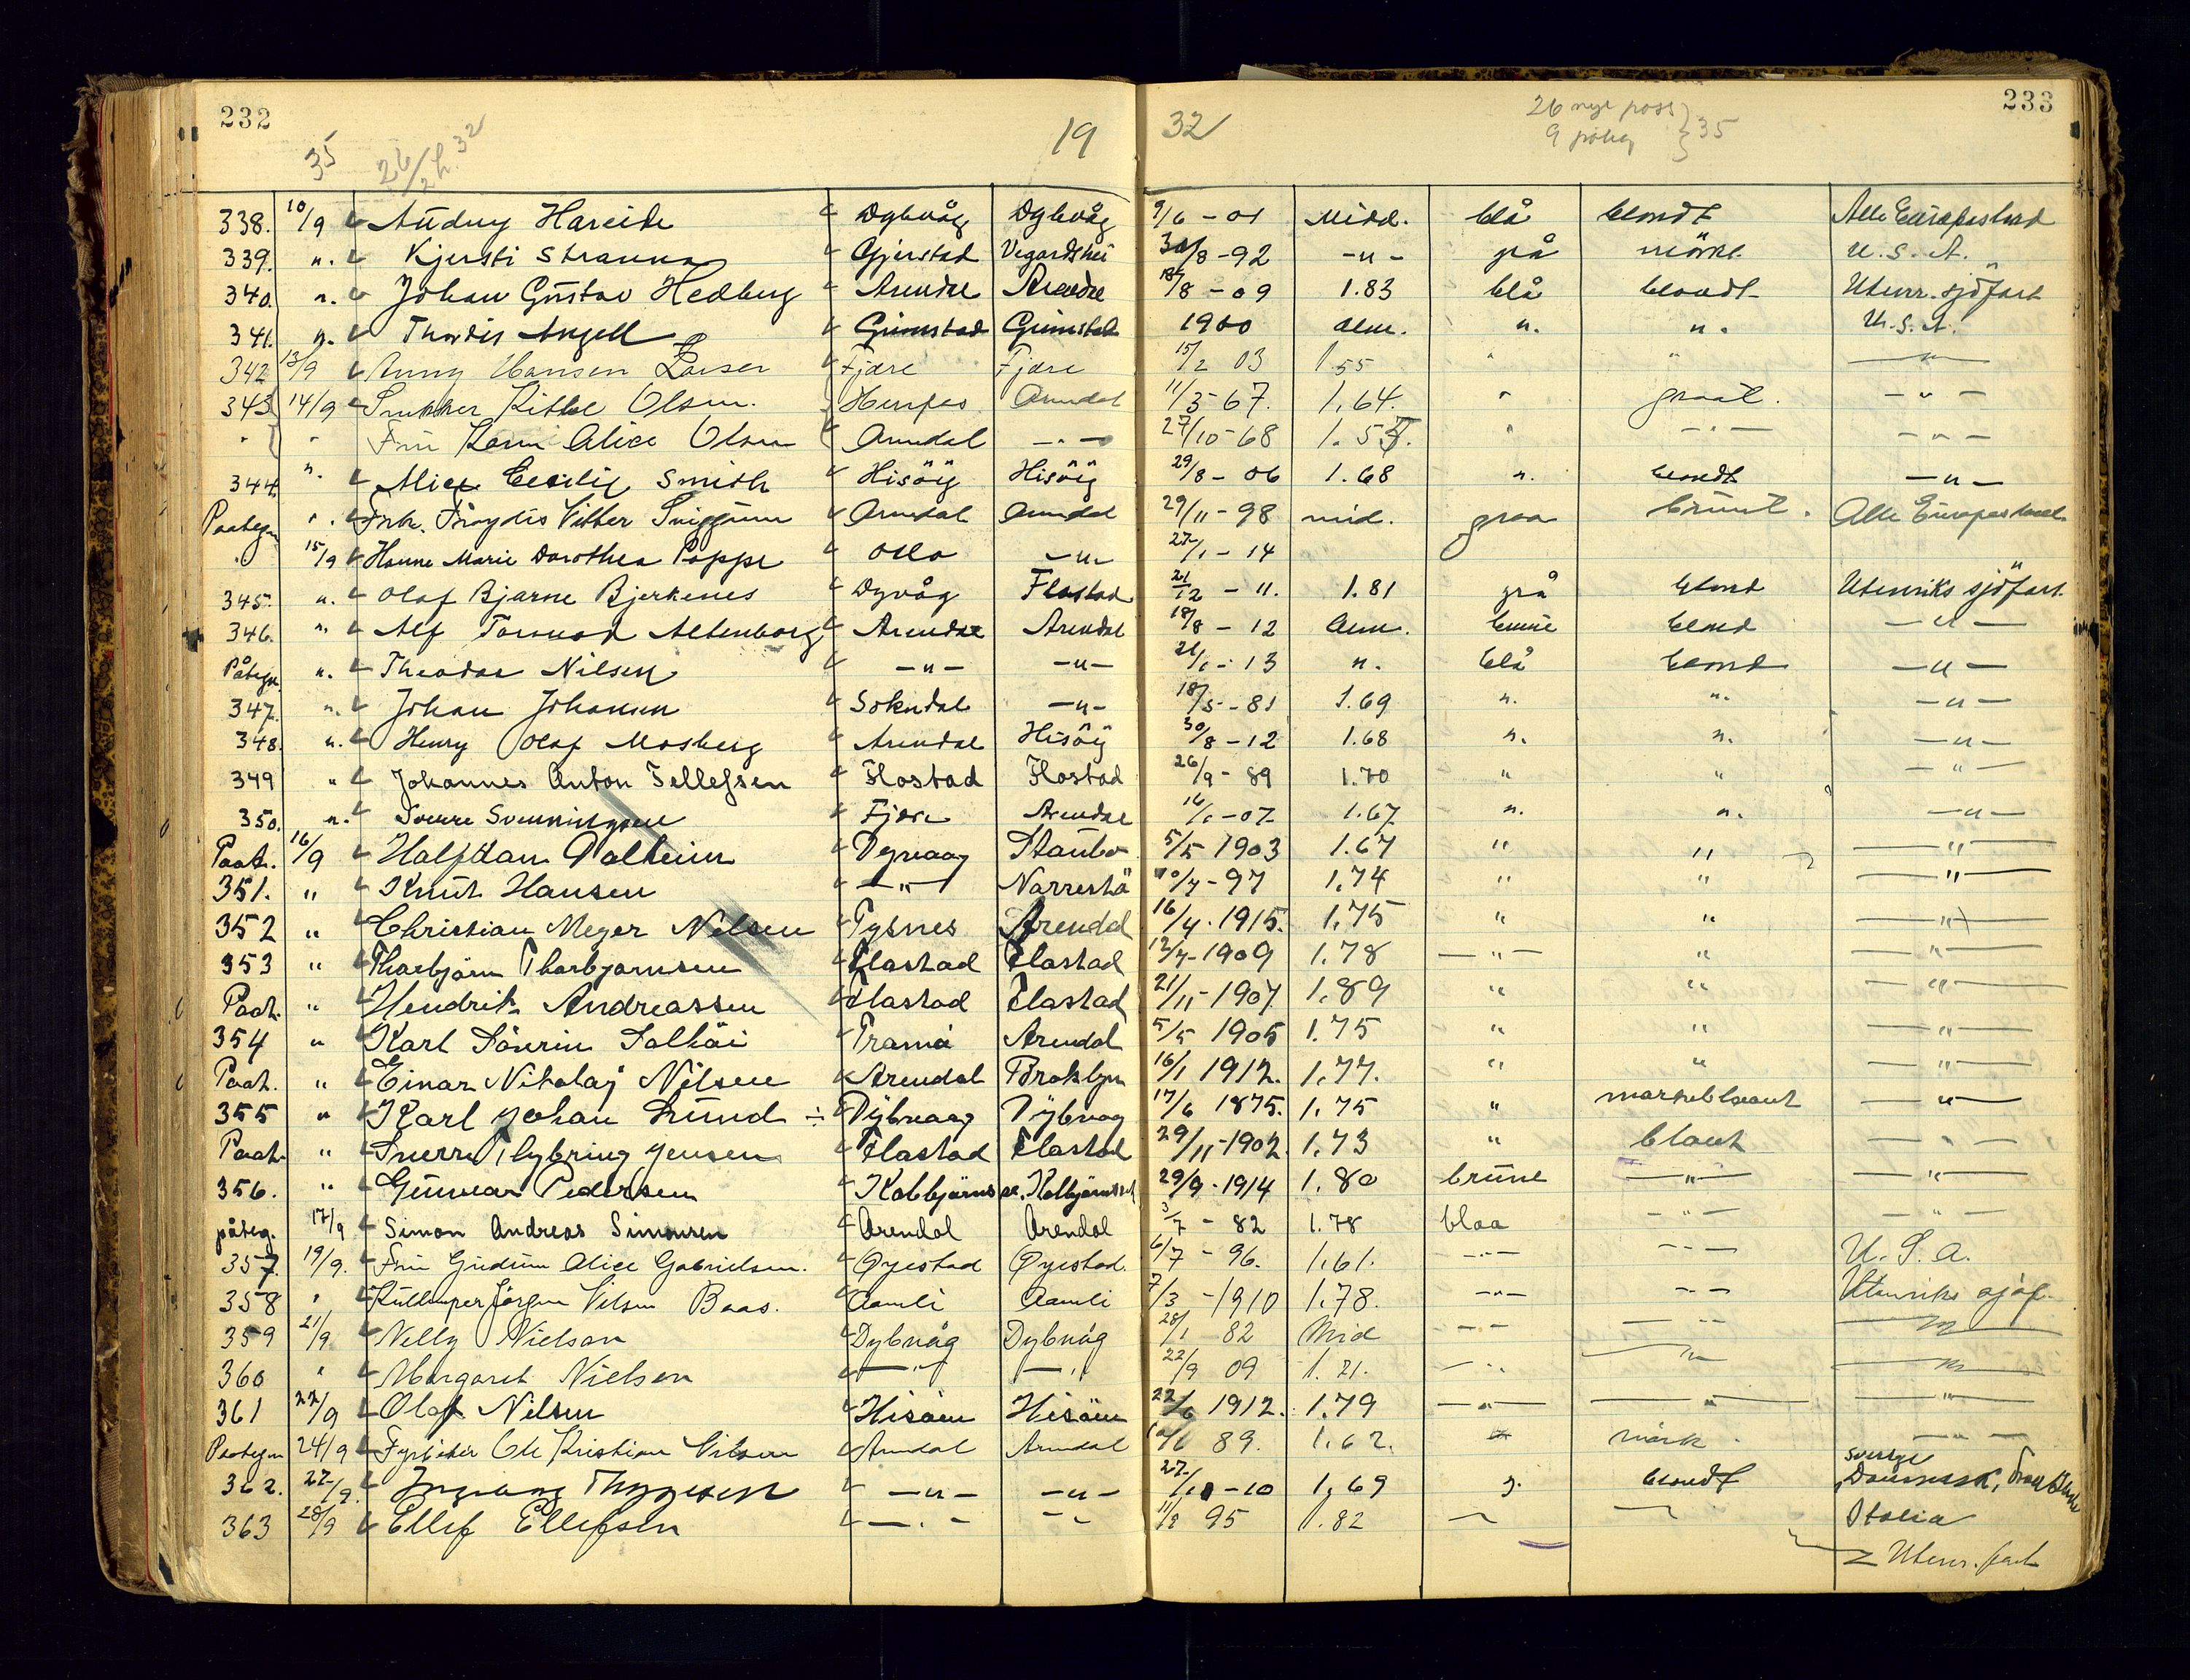 232
233
35
19
32
26 nye pass
9 påteg } 35
338. 10/9 Audny Hareide Dybvåg Dybvåg 9/6 - 01 Midd. blå blondt Alle Europas land
339. " Kjersti Straume Gjerstad Vegårdshei /8 - 92 - " - grå mörkt U.S.A.
340. " Johan Gustav Hedberg Arendal Arendal 18/8 - 09 1.83 blå blondt Utenr. sjöfart
341. " Thordis Angell Grimstad Grimstad 1900 alm. " " U.S.A.
342 13/9 Anny Hansen Larsen Fjære Fjære 15/2 03 1.55 " " "
343 14/9 Snekker Kittel Olsen. Arendal 11/3 - 67. 1.64. " graat. - " -
" " Fru Alice Olsen Arendal - " - 27/10 - 68 " - " - - " -
344. " Alice Cecilie Smith Hisöy Hisöy 29/8 - 06 1.68 " blondt - " -
Paategn " Frk. Frøydis Vibber Arendal Arendal 29/11 - 98 mid. graa brunt. Alle Europas land
" 15/9 Hanne Marie Dorothea Poppe Oslo - " - 27/1 - 14
345. " Olaf Bjarne Bjerkenes Dyvåg Flostad 21/12 - 11. 1.81 grå blond Utenriks sjöfart
346. " Alf Tormod Altenborg Arendal Arendal 18/8 - 12 Alm. brune blond - " -
Påtegn. " Theodor Nilsen - " - - " - 21/1 - 13 " blå blond - " -
347. " Johan Johansen Sokndal - " - 18/5 - 81 1.69 " " - " -
348. " Henry Olaf Mosberg Arendal Hisöy 30/8 - 12 1.68 " " - " -
349 " Johannes Anton Tellefsen Flostad Flostad 26/9 - 89 1.70 " " - " -
350. " Sverre Svenningsen Fjære Arendal 16/1 - 07 1.67 " " - " -
Paat. 16/9 Halfdan Dalheim Dyvaag Staubø 5/5 1903 1.67 " " - " -
351. " Knut Hansen - " - Narrestö /7 - 97 1.74 " " - " -
352 " Christian Meyer Nilsen Tysnes Arendal 16/4 . 1915. 1.75 " " - " -
353 " Thorbjörn Thorbjørnsen Flastad Flastad 12/7 - 1909 1.78 - " - " - " -
Paat. " Hendrik Andreassen Flastad Flastad 21/11 - 1907 1.89 " " - " -
354 " Karl Sörrin Solhöi Tromö Arendal 5/5 1905 1.75 " " - " -
Paat. " Einar Nikolaj Nilsen Arendal Broklyn 16/1 1912. 1.77. " " - " -
355 " Karl Johan Lund ÷ Dybvaag Dybvag 17/6 1875. 1.75 " mørkeblont - " -
Paat. " Sverre Thybring Jensen Flastad Flastad 29/11 - 1902. 1.73 " blont - " -
356. " Gunnar Pedersen Kolbjörns Kolbjörnsvik 29/9 . 1914 1.80 brune - " - - " -
påteg. 17/9 Simon Andreas Simonsen Arendal Arendal 3/7 - 82 1.78 blaa - " - - " -
357. 19/9. Fru Gudrun Alice Gabrielsen. Øyestad Øyestad. 6/7 - 96. 1.61. - " - - " - U.S.A.
358 " Jörgen Nilsen Baas. Aamli Aamli 7/3 - 1910 1.78. - " - - " - Utenriks sjøf.
359 21/9 Nelly Nielsen Dybvåg Dybvåg 28/1 82 Mid - " - - " - "
360 " Margaret Nielsen - " - - " - 22/9 09 1.21. - " - " "
361 22/9 Olaf Nilsen Hisöen Hisöen 22/6 1912. 1.79 - " - - " - - " -
Paategn 24/9 Fyrbøter Ole Kristian Nilsen Arendal Arendal 10/6 89. 1.62. " mørk. - " -
362. 27/9. Ingvang Thygesen - " - - " - 27/10 - 10 1,69 " blondt Sverige Danmark,
363 28/9 Ellef Ellefsen - " - - " - 11/8 95 1.82 Italia
Utenr. fart